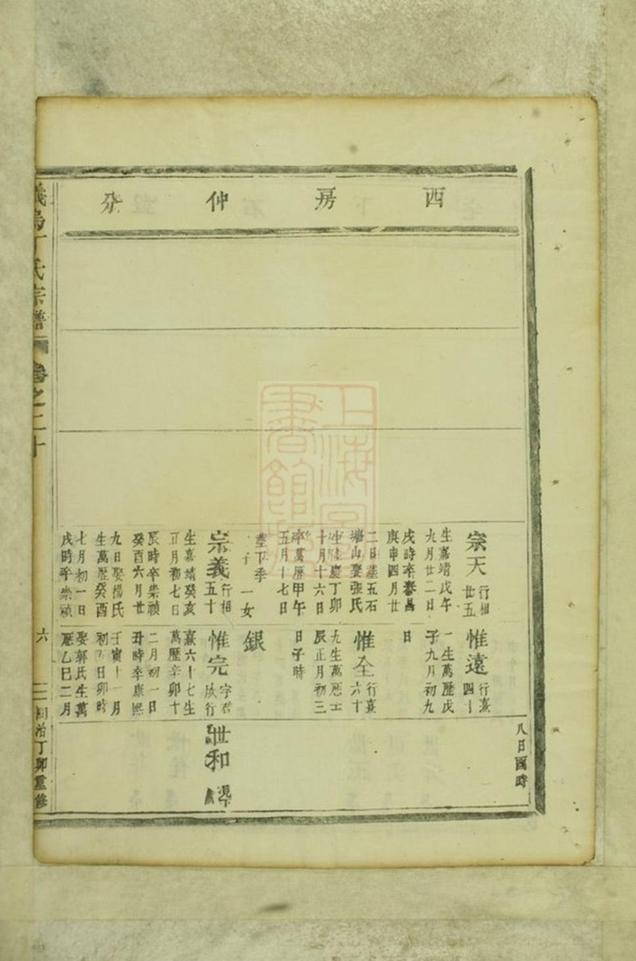 西房仲分
宗天行相廿五
生嘉靖戊午
九月廿二日
戌時卒泰昌
庚申四月廿
二日墓五石
塘山娶張氏
生隆慶丁卯
十月十六日
卒萬曆甲午
五月十七日
墓下季
一子一女
宗義行相五十
生嘉靖癸亥
正月初七日
辰時卒崇禎
癸酉六月廿
九日娶楊氏
生萬曆癸酉
七月初一日
戌時卒崇禎
惟遠行熹四十
一生萬曆戊
子九月初九
日
惟全行熹六十
九生萬曆壬
辰正月初三
日子時
銀
惟完字君行
熹六十七生
萬曆辛卯十
二月初一日
丑時卒康熙
壬寅十一月
初日卯時
娶郭氏生萬
曆乙巳二月
八日酉時
世和
義烏丁氏宗譜
卷之二十
六
同治丁卯重修
上海圖書館藏